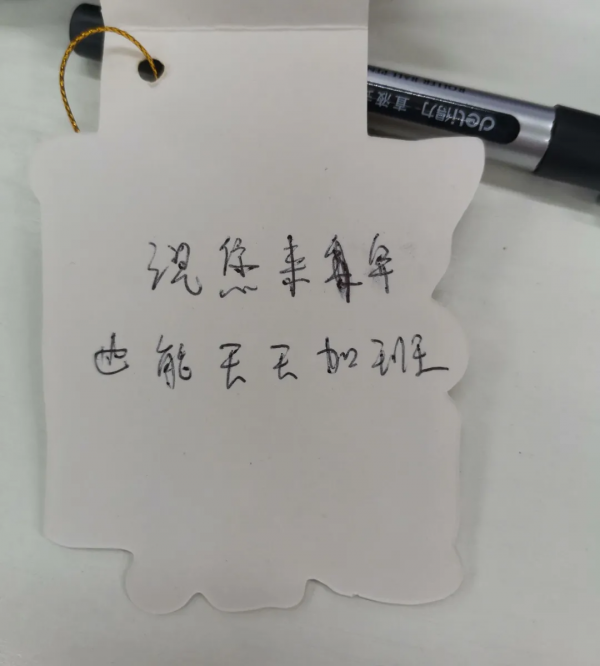 祝您来年
也能天天加班
deli得力 直液